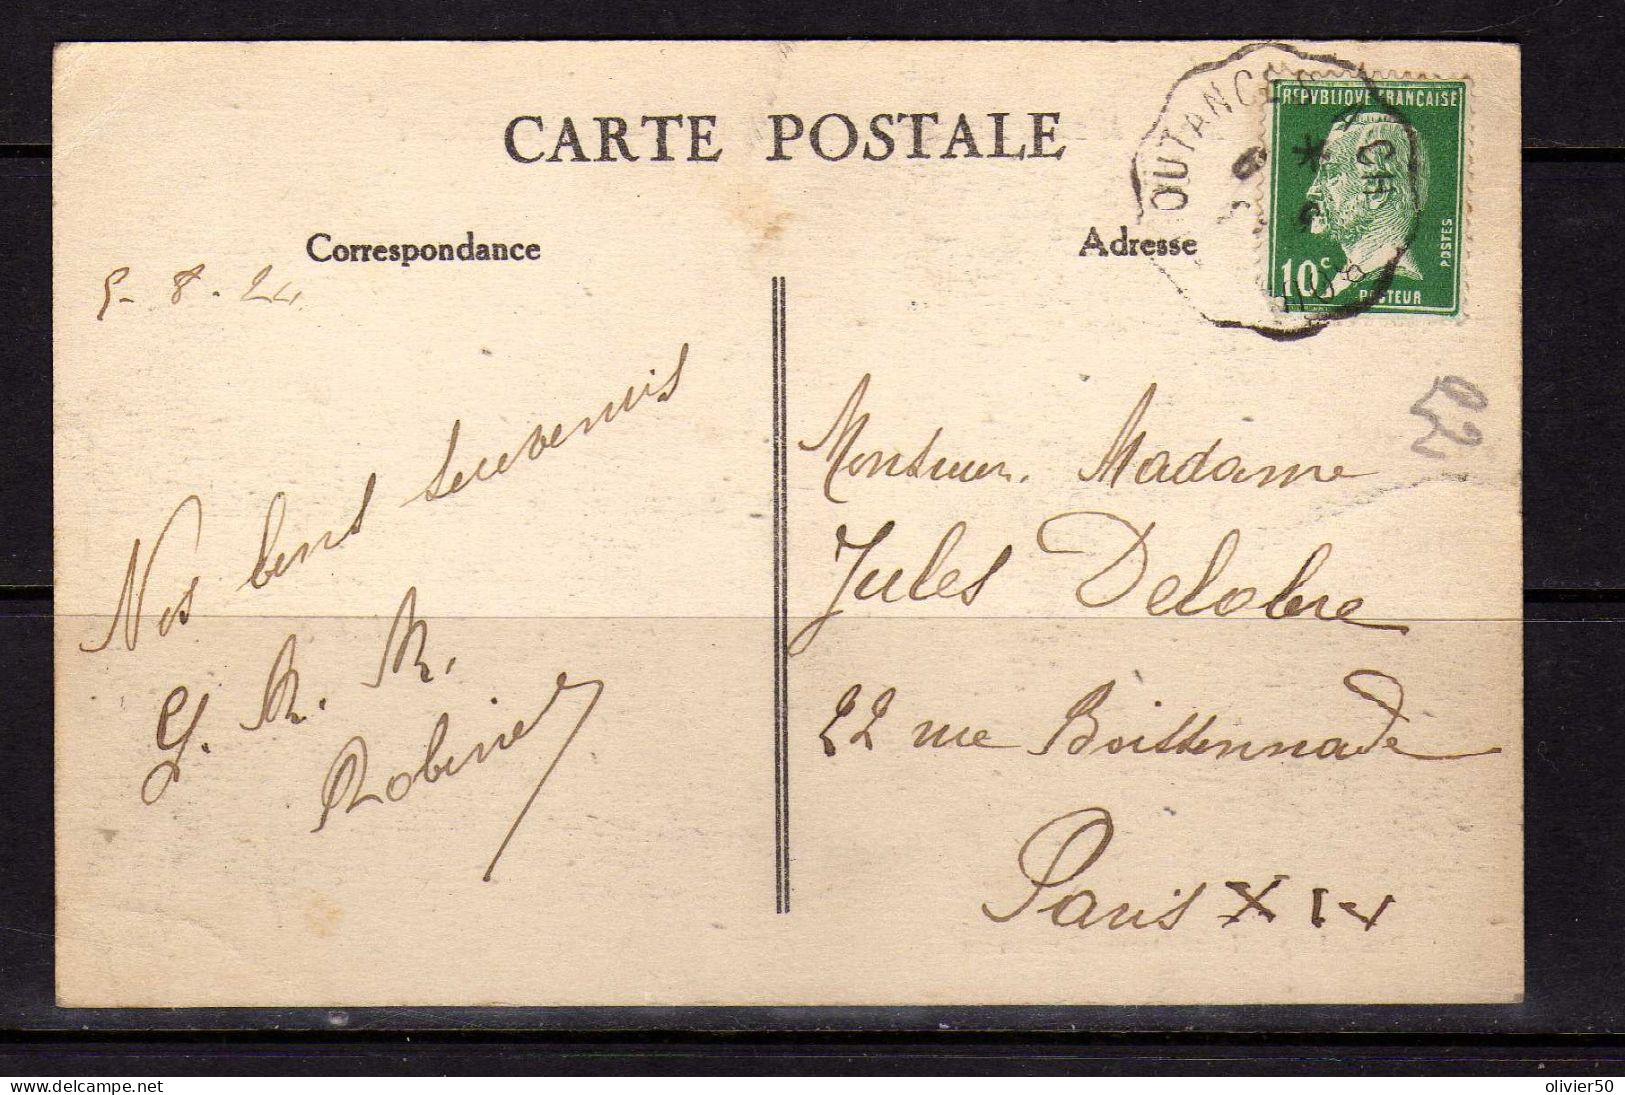 CARTE POSTALE
Correspondance
Adresse
5-8.24
Nos bons souvenirs
Robinet
Monsieur. Madame
Jules Delobre
22 rue Boissonnade
Paris XIV
REPVBLIQVE FRANCAISE
POSTES
10c
PASTEUR
OUTANCES
olivier50